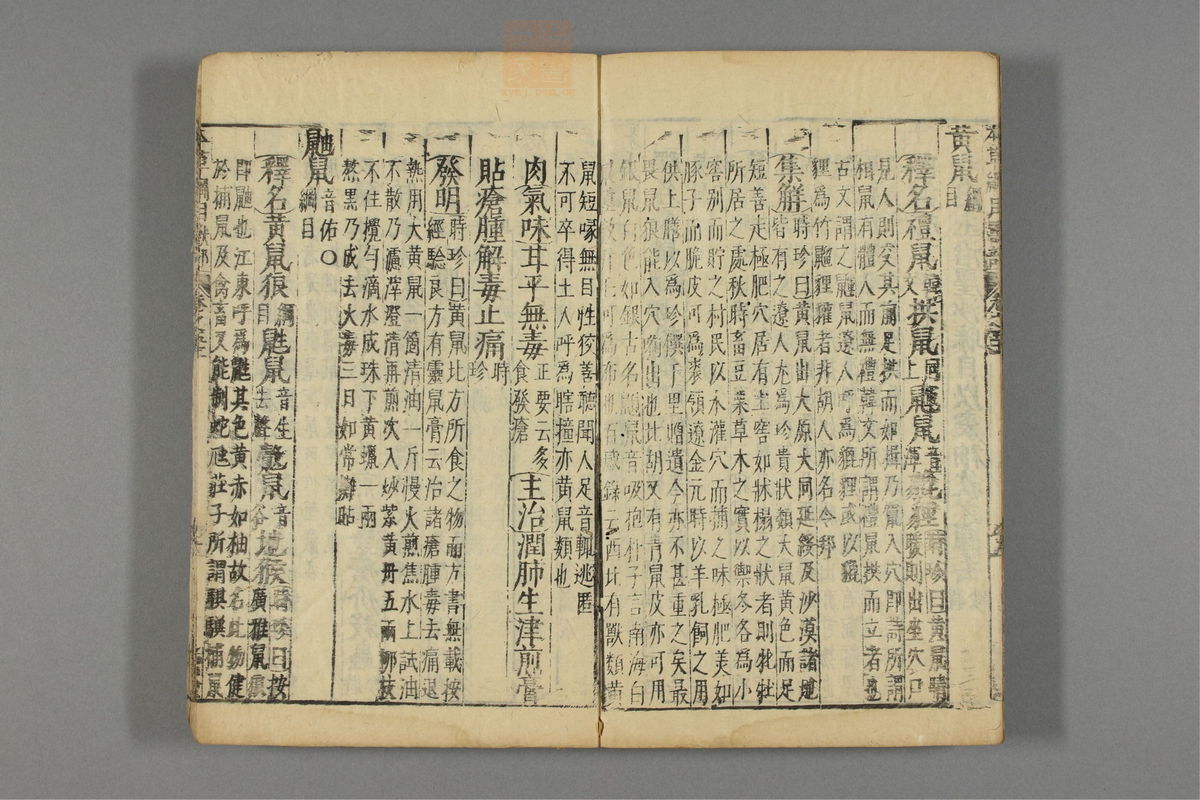 黃鼠綱目
釋名禮鼠韓文拱鼠同上鼲鼠音渾貔貍時珍曰黃鼠晴暖則出坐穴口
見人則交其前足拱而如揖乃竄入穴即詩所謂
相鼠有體人而無禮韓文所謂禮鼠拱而立者也
古文謂之鼲鼠遼人呼為貔貍或以貔
貍為竹䶉貍獾者非胡人亦名令邦
集解時珍曰黃鼠出太原大同延綏及沙漠諸地
皆有之遼人尤為珍貴狀類大鼠黃色而足
短善走極肥穴居有土窖如牀榻之狀者則牝牡
所居之處秋時畜豆粟草木之實以禦冬各為小
窖別而貯之村民以水灌穴而捕之味極肥美如
豚子而脆皮可為裘領遼金元時以羊乳飼之用
供上膳以為珍饌千里贈遺今亦不甚重之矣最
畏鼠狼能入穴啣出也北胡又有青鼠皮亦可用
銀鼠白色如銀古名鼲鼠音吸抱朴子言南海白
可為布也百感錄云西北有獸類黃
鼠短喙無目性狡善聽聞人足音輒逃匿
不可卒得土人呼為瞎撞亦黃鼠類也
肉氣味甘平無毒正要云多食發瘡主治潤肺生津煎膏
貼瘡腫解毒止痛時珍
發明時珍曰黃鼠北方所食之物而方書無載按
經驗良方有靈鼠膏云治諸瘡腫毒去痛退
熱用大黃鼠一箇清油一斤慢火煎焦水上試油
不散乃濾滓澄清再煎次入炒紫黃丹五兩柳枝
不住攪勻滴水成珠下黃蠟一兩
熬黑乃成去火毒三日如常攤貼
鼬鼠音佑○綱目
釋名黃鼠狼綱目鼪鼠音生去聲䶃鼠音谷地猴時珍曰按廣雅鼠狼
即鼬也江東呼為鼪其色黃赤如柚故名此物健
於捕鼠及禽畜又能制蛇虺莊子所謂騏驥捕鼠